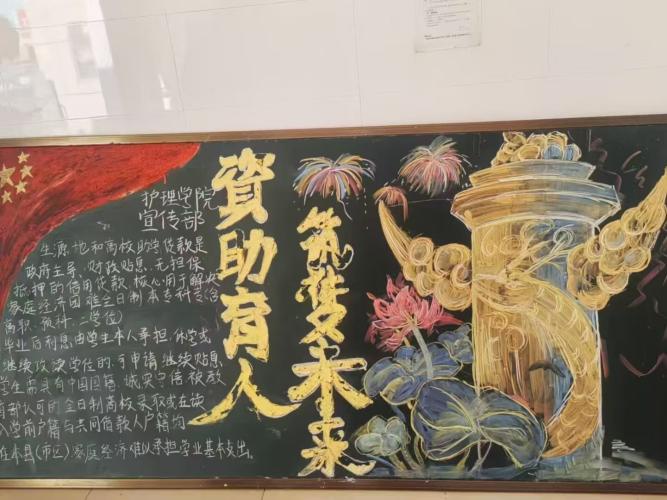 護理学院
宣传部
資助育人
筑梦未来
生源地和高校助学贷款是
政府主导、财政贴息、无担保
抵押的信用贷款,核心用于解决
家庭经济困难全日制本专科生(含
高职、预科、二学位)
毕业后利息由学生本人承担,休学或
继续攻读学位的可申请继续贴息
学生需具有中国国籍,诚实守信被教
育部认可的全日制高校录取或在读
入学前户籍与共同借款人户籍均
在本县(市区)家庭经济难以承担学业基本支出。